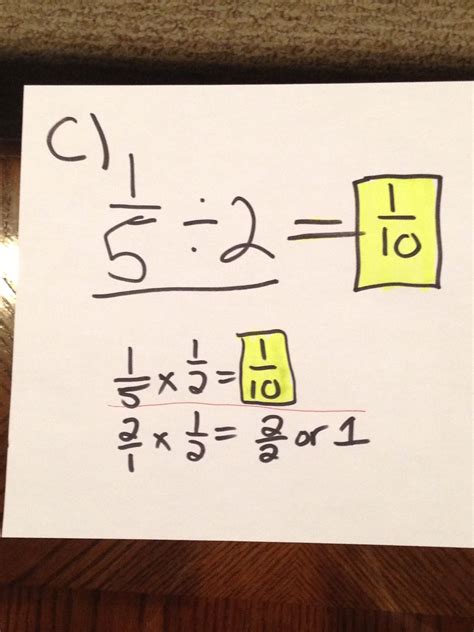 C)
1/5 ÷ 2 = 1/10
1/5 x 1/2 = 1/10
2/1 x 1/2 = 2/2 or 1